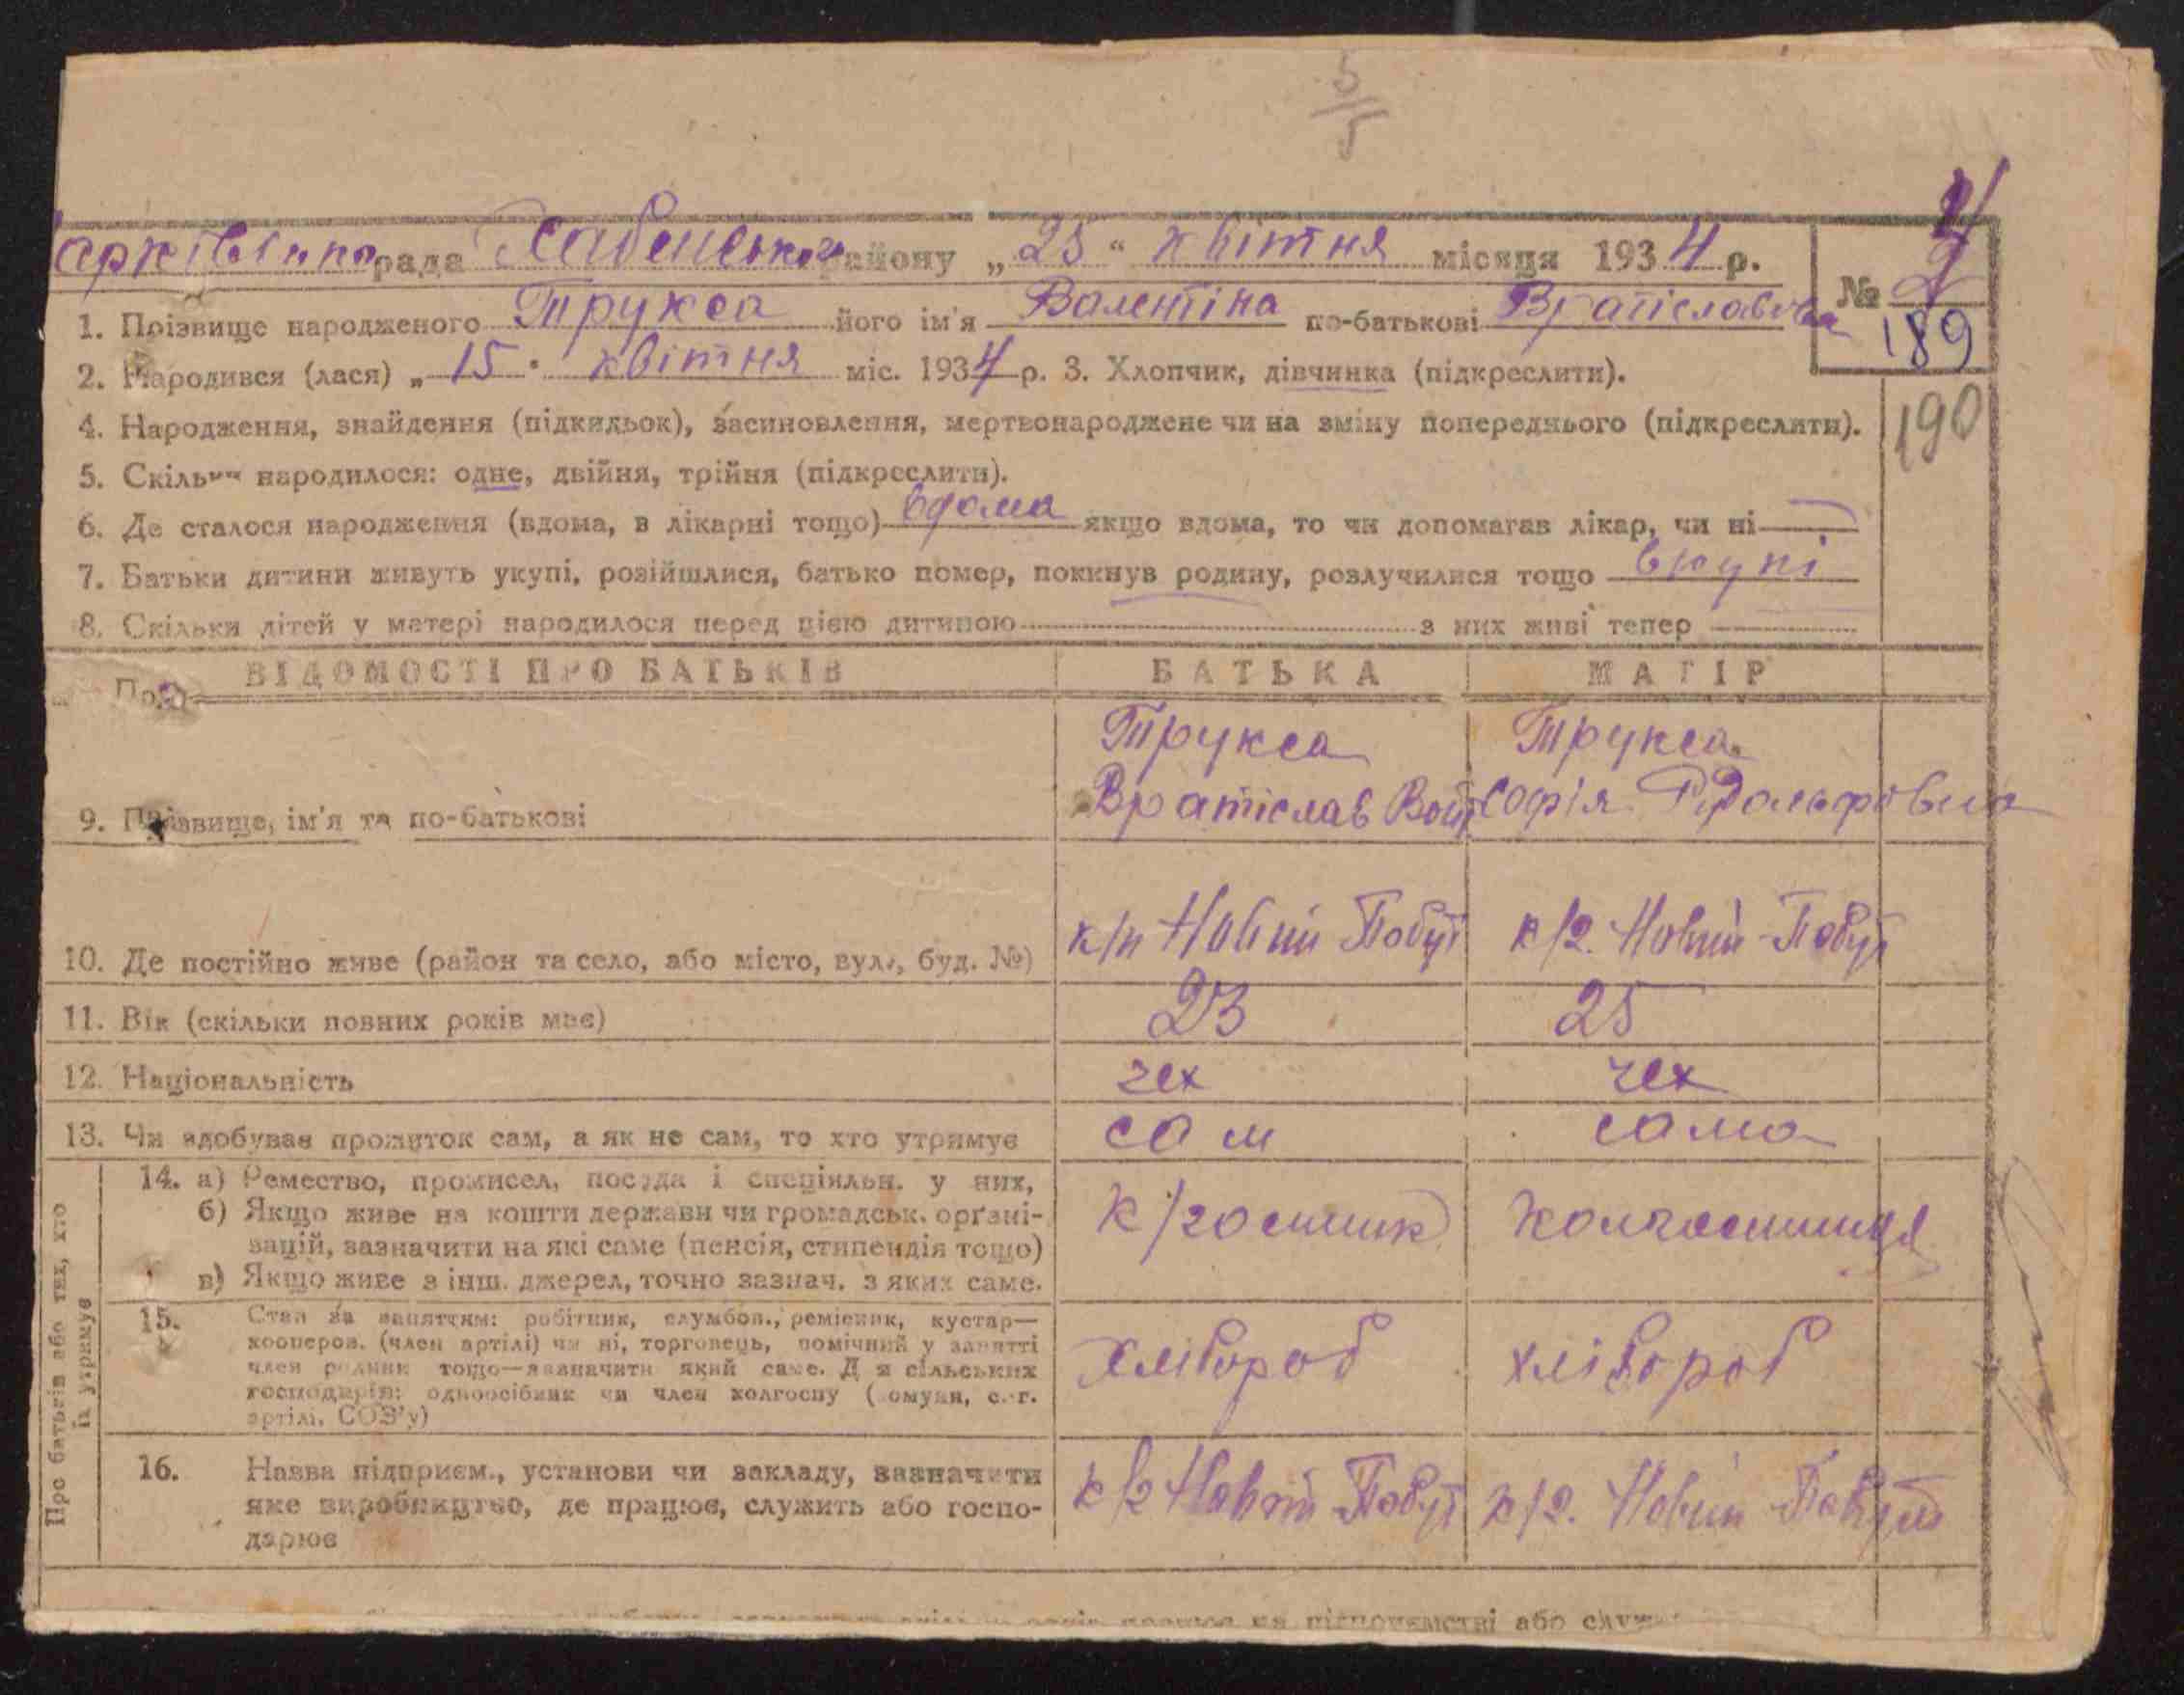 5/5
рада Хабенського району „25“ квітня місяця 1934 р.
№ 2
189
190
1. Прізвище народженого Трукса його ім'я Валентіна по-батькові Вратіславовна
2. Народився (лася) „15“ квітня міс. 1934 р. 3. Хлопчик, дівчинка (підкреслити).
4. Народження, знайдення (підкидьок), засиновлення, мертвонароджене чи на зміну попереднього (підкреслити).
5. Скільки народилося: одне, двійня, трійня (підкреслити).
6. Де сталося народження (вдома, в лікарні тощо) вдома якщо вдома, то чи допомагав лікар, чи ні —
7. Батьки дитини живуть укупі, розійшлися, батько помер, покинув родину, розлучилися тощо вкупі
8. Скільки дітей у матері народилося перед цією дитиною з них живі тепер
ВІДОМОСТІ ПРО БАТЬКІВ БАТЬКА МАТІР
9. Прізвище, ім'я та по-батькові Трукса Вратіслав Войт Трукса Софія Рудольфовна
10. Де постійно живе (район та село, або місто, вул., буд. №) к/г Новий Побут к/г. Новий Побут
11. Вік (скільки повних років має) 23 25
12. Національність чех чех
13. Чи здобував прожиток сам, а як не сам, то хто утримує сам сама
Про батьків або тих, хто їх утримує
14. а) Ремество, промисел, посада і спеціяльн. у них,
б) Якщо живе на кошти держави чи громадськ. орґані-
зацій, зазначити на які саме (пенсія, стипендія тощо)
в) Якщо живе з інш. джерел, точно зазнач. з яких саме.
к/госпник колгоспниця
15. Стан за заняттям: робітник, службов., ремісник, кустар—
кооперов. (член артілі) чи ні, торговець, помічний у занятті
член родини тощо—зазначити який саме. Для сільських
господарів: одноосібник чи член колгоспу (комуни, с.-г.
артілі, СОЗ'у)
хлібороб хлібороб
16. Назва підприєм., установи чи закладу, зазначити
яке виробництво, де працює, служить або госпо-
дарює
к/г Новий Побут к/г. Новий Побут
працює на підприємстві або служ